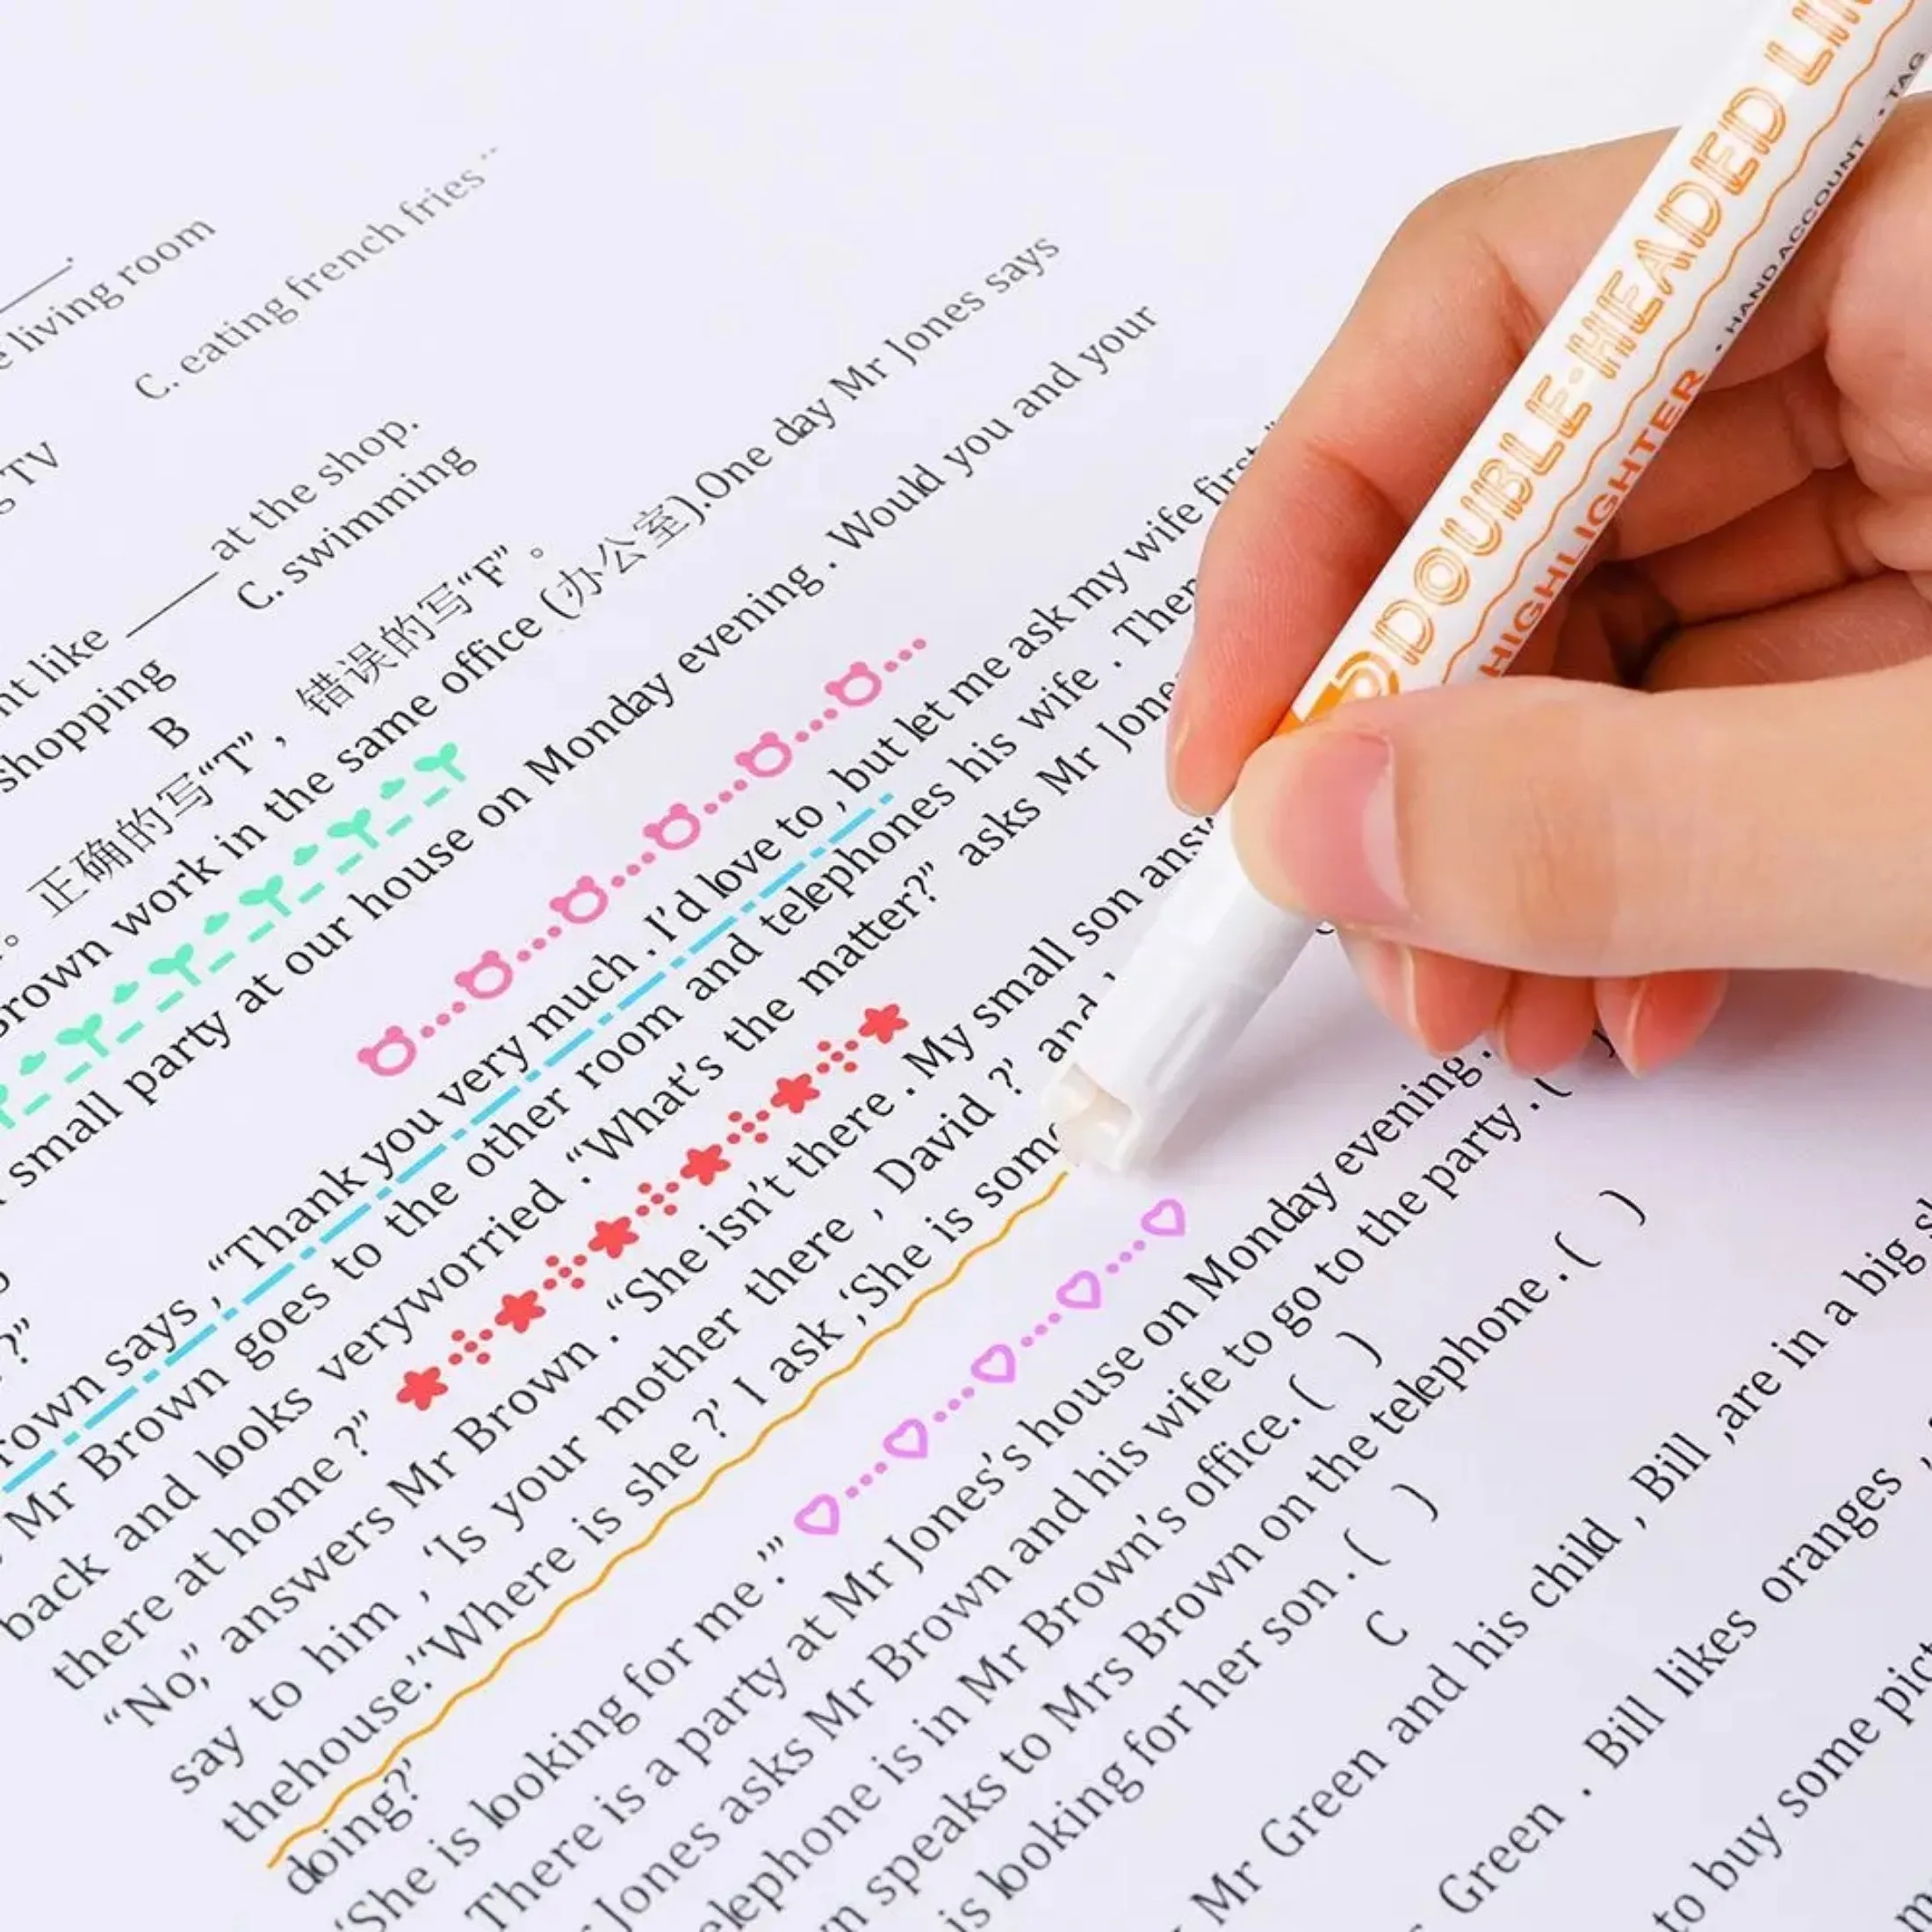 living room
C. eating french fries
TV
at the shop.
C. swimming
like
shopping
B
。 正确的写“T”， 错误的写“F” 。
Brown work in the same office (办公室).One day Mr Jones says
small party at our house on Monday evening . Would you and your
says , “Thank you very much . I’d love to , but let me ask my wife first.”
Mr Brown goes to the other room and telephones his wife . Then
back and looks veryworried . “What’s the matter?” asks Mr Jones
there at home ?”
“No,” answers Mr Brown . “She isn’t there . My small son
say to him , ‘Is your mother there , David ?’ and
thehouse.’“Where is she ?’ I ask ,‘She is
doing?’
‘She is looking for me .’”
There is a party at Mr Jones’s house on Monday evening .
Jones asks Mr Brown and his wife to go to the party . ( )
telephone is in Mr Brown’s office. ( )
speaks to Mrs Brown on the telephone . ( )
is looking for her son . ( )
C
Mr Green and his child , Bill ,are in a big
Green . Bill likes oranges ,
to buy some
DOUBLE·HEADED
HIGHLIGHTER
• HAND ACCOUNT • TAG